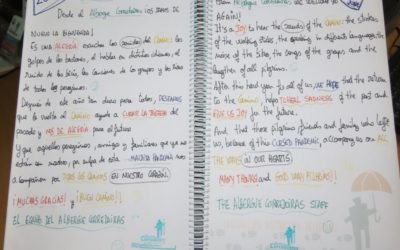 20
Desde el Albergue Corredoiras, los damos de
Nuevo la Bienvenida!
Es una ALEGRÍA escuchar los sonidos del Camino: los
golpes de los bastones, el hablar en distintos idiomas, el
ruido de las bicis, las canciones de los grupos y las risas
de todos los peregrinos.
Después de este año tan duro para todos, DESEAMOS
que la vuelta al Camino ayude a CURAR LA TRISTEZA del
pasado y NOS DE ALEGRÍA para el futuro
Y que aquellos peregrinos, amigos y familiares que ya no
están con nosotros, por culpa de esta MALDITA PANDEMIA, nos
acompañen por TODOS LOS CAMINOS EN NUESTRO CORAZÓN
¡MUCHAS GRACIAS! y ¡BUEN CAMINO!
EL EQUIPO DEL ALBERGUE CORREDOIRAS
Again!
It's a Joy to hear the Sounds of the CAMINO: the strokes
of the walking sticks, the speaking in different languages, the
noise of the bikes, the songs of the groups and the
laughter of all pilgrims.
After this hard year for all of us, we HOPE that the return
to the Camino, helps TO HEAL SADNESS of the past and
GIVE US JOY for the future.
And that those pilgrims, friends and family who left
us, because of this CURSED PANDEMIC, accompany us on ALL
THE WAYS IN OUR HEARTS
MANY THANKS! and GOOD WAY PILGRIMS!!
THE ALBERGUE CORREDOIRAS STAFF